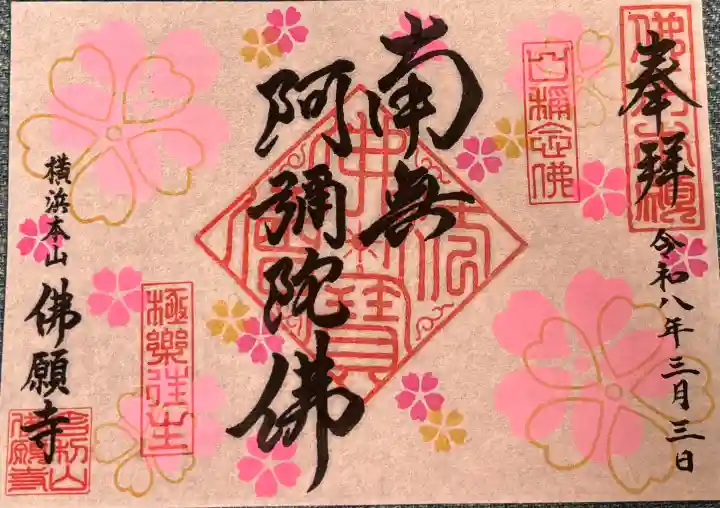 奉拝
令和八年三月三日
口稱念佛
南無
阿彌陀佛
極樂往生
横浜本山
佛願寺